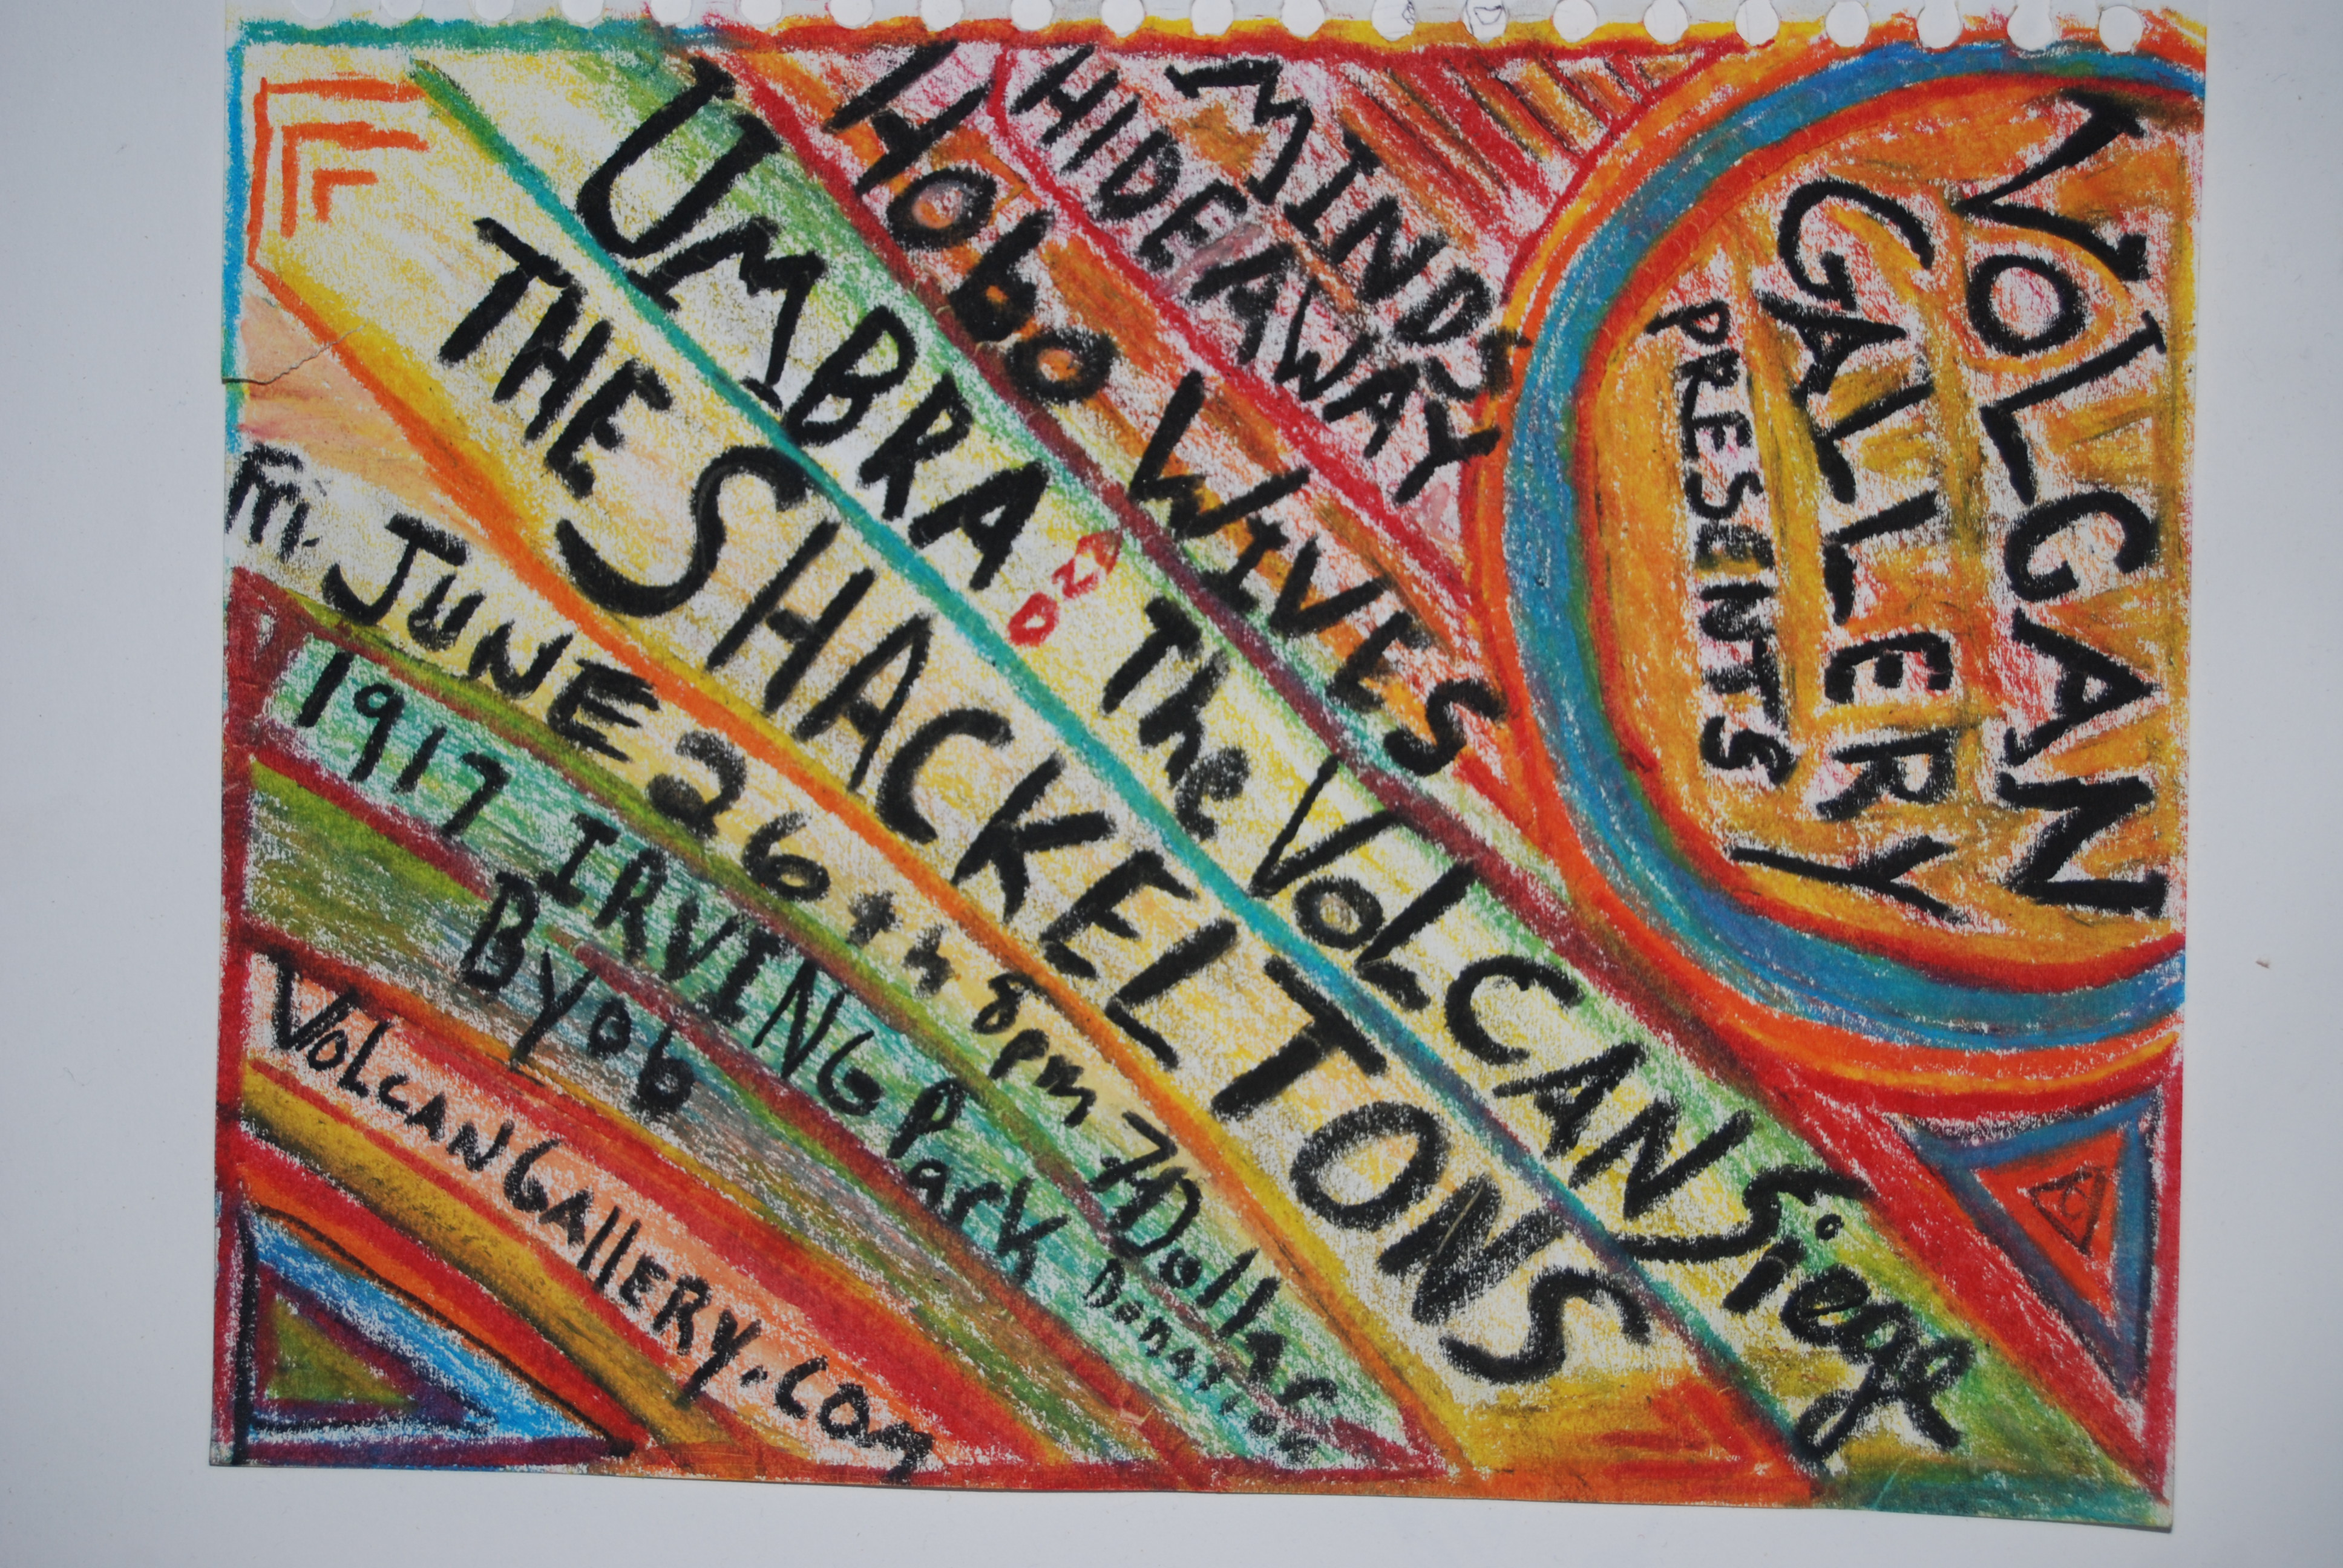 VOLCAN
GALLERY
PRESENTS
MINDS
HIDEAWAY
Hobo WIVES
UMBRA The VOLCAN Siege
THE SHACKELTONS
Fri. JUNE 26th 8pm 7 Dollar
Donation
1917 IRVING Park
Byob
VolcanGallery.com